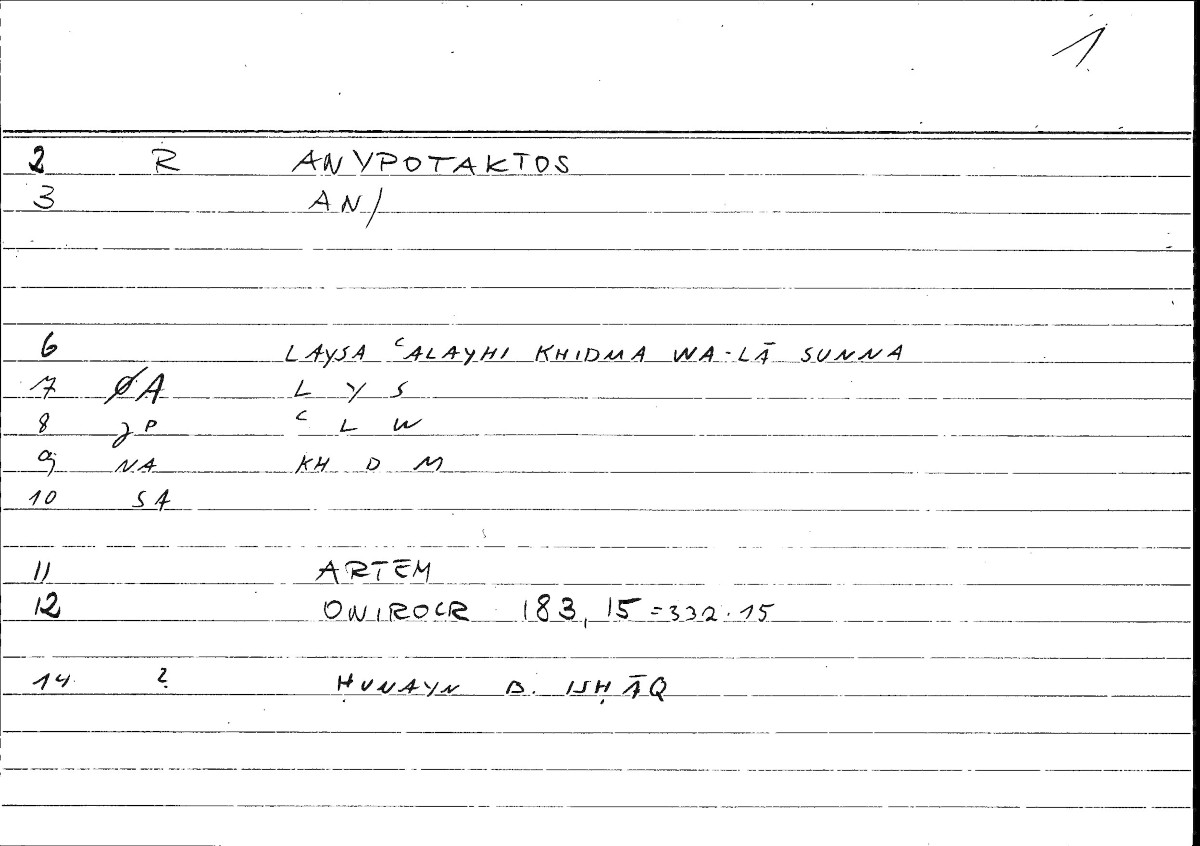 1.
2 R ANYPOTAKTOS
3 AN/
6 LAYSA ʿALAYHI KHIDMA WA-LĀ SUNNA
7 ØA L Y S
8 JP ʿ L W
9 NA KH D M
10 SA
11 ARTEM
12 ONIROCR 183, 15 = 332.15
14 ? ḤUNAYN B. ISḤĀQ